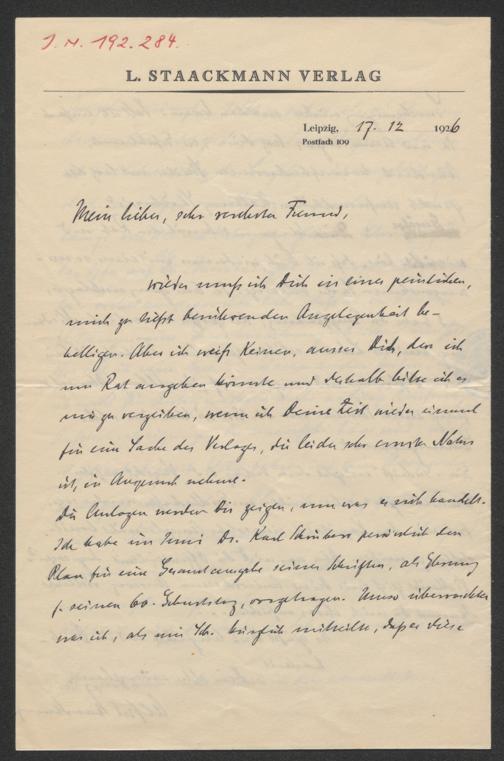 J. N. 192.284.
L. STAACKMANN VERLAG
Leipzig, 17. 12 1926
Postfach 109
Mein lieber, sehr verehrter Freund,
wieder muß ich Dich in einer peinlichen,
mich zu tiefst berührenden Angelegenheit be-
helligen. Aber ich weiß Keinen, ausser Dich, den ich
um Rat angehen könnte und deshalb bitte ich es
mir zu vergeben, wenn ich Deine Zeit wieder einmal
für eine Sache des Verlages, die leider sehr ernster Natur
ist, in Anspruch nehme.
Die Anlagen werden Dir zeigen, um was es sich handelt.
Ich habe im Juni Dr. Karl Schönherr persönlich den
Plan für eine Gesamtausgabe seiner Schriften, als Ehrung
f. seinen 60. Geburtstag, vorgetragen. Umso überraschter
war ich, als mir Sch. kürzlich mitteilte, daß er diese